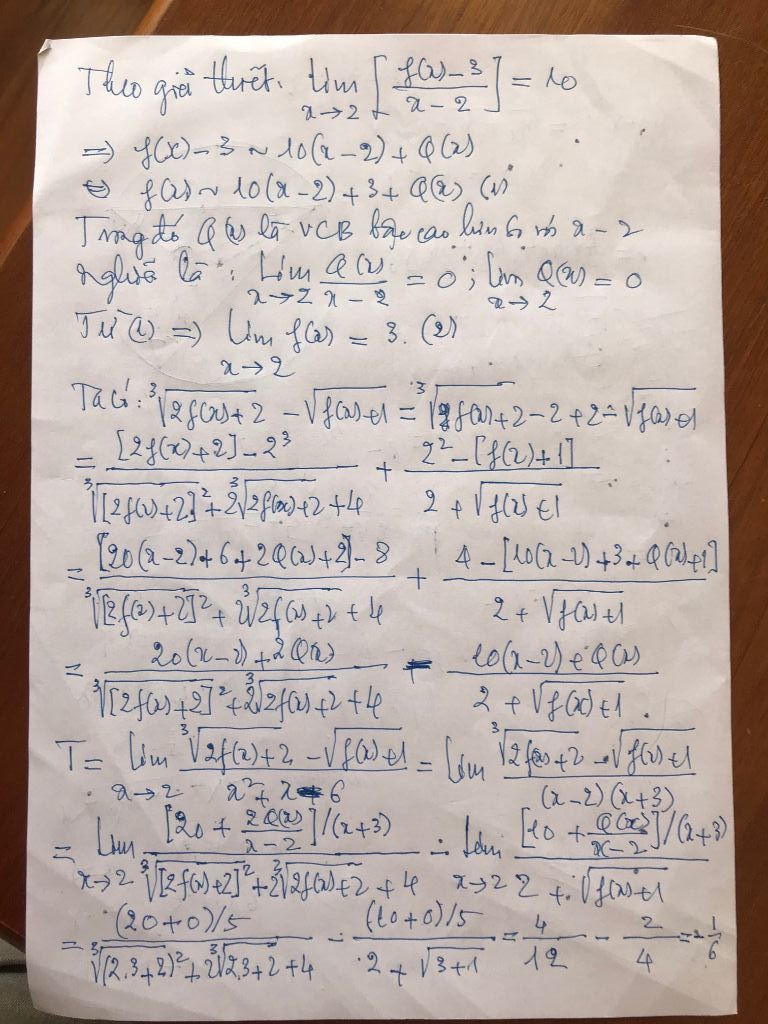 Theo giả thiết: lim x→2 [(f(x)-3)/(x-2)] = 10
=> f(x)-3 ~ 10(x-2) + Q(x)
<=> f(x) ~ 10(x-2)+3+Q(x) (1)
Trong đó Q(x) là VCB bậc cao hơn so với x-2
nghĩa là: Lim x→2 Q(x)/(x-2) = 0; lim x→2 Q(x) = 0
Từ (1) => lim x→2 f(x) = 3. (2)
Ta có: ∛(2f(x)+2) - √(f(x)+1) = ∛(2f(x)+2) - 2 + 2 - √(f(x)+1)
= ([2f(x)+2] - 2³)/(∛([2f(x)+2]²) + 2∛(2f(x)+2) + 4) + (2² - [f(x)+1])/(2 + √(f(x)+1))
= ([20(x-2)+6+2Q(x)+2] - 8)/(∛([2f(x)+2]²) + 2∛(2f(x)+2) + 4) + (4 - [10(x-2)+3+Q(x)+1])/(2 + √(f(x)+1))
= (20(x-2)+2Q(x))/(∛([2f(x)+2]²) + 2∛(2f(x)+2) + 4) - (10(x-2)+Q(x))/(2 + √(f(x)+1)).
T = lim x→2 (∛(2f(x)+2) - √(f(x)+1))/(x²+x-6) = lim (∛(2f(x)+2) - √(f(x)+1))/((x-2)(x+3))
= lim x→2 ([20 + 2Q(x)/(x-2)]/(x+3))/(∛([2f(x)+2]²) + 2∛(2f(x)+2) + 4) - lim x→2 ([10 + Q(x)/(x-2)]/(x+3))/(2 + √(f(x)+1))
= ((20+0)/5)/(∛((2.3+2)²) + 2∛(2.3+2) + 4) - ((10+0)/5)/(2 + √(3+1)) = 4/12 - 2/4 = -1/6